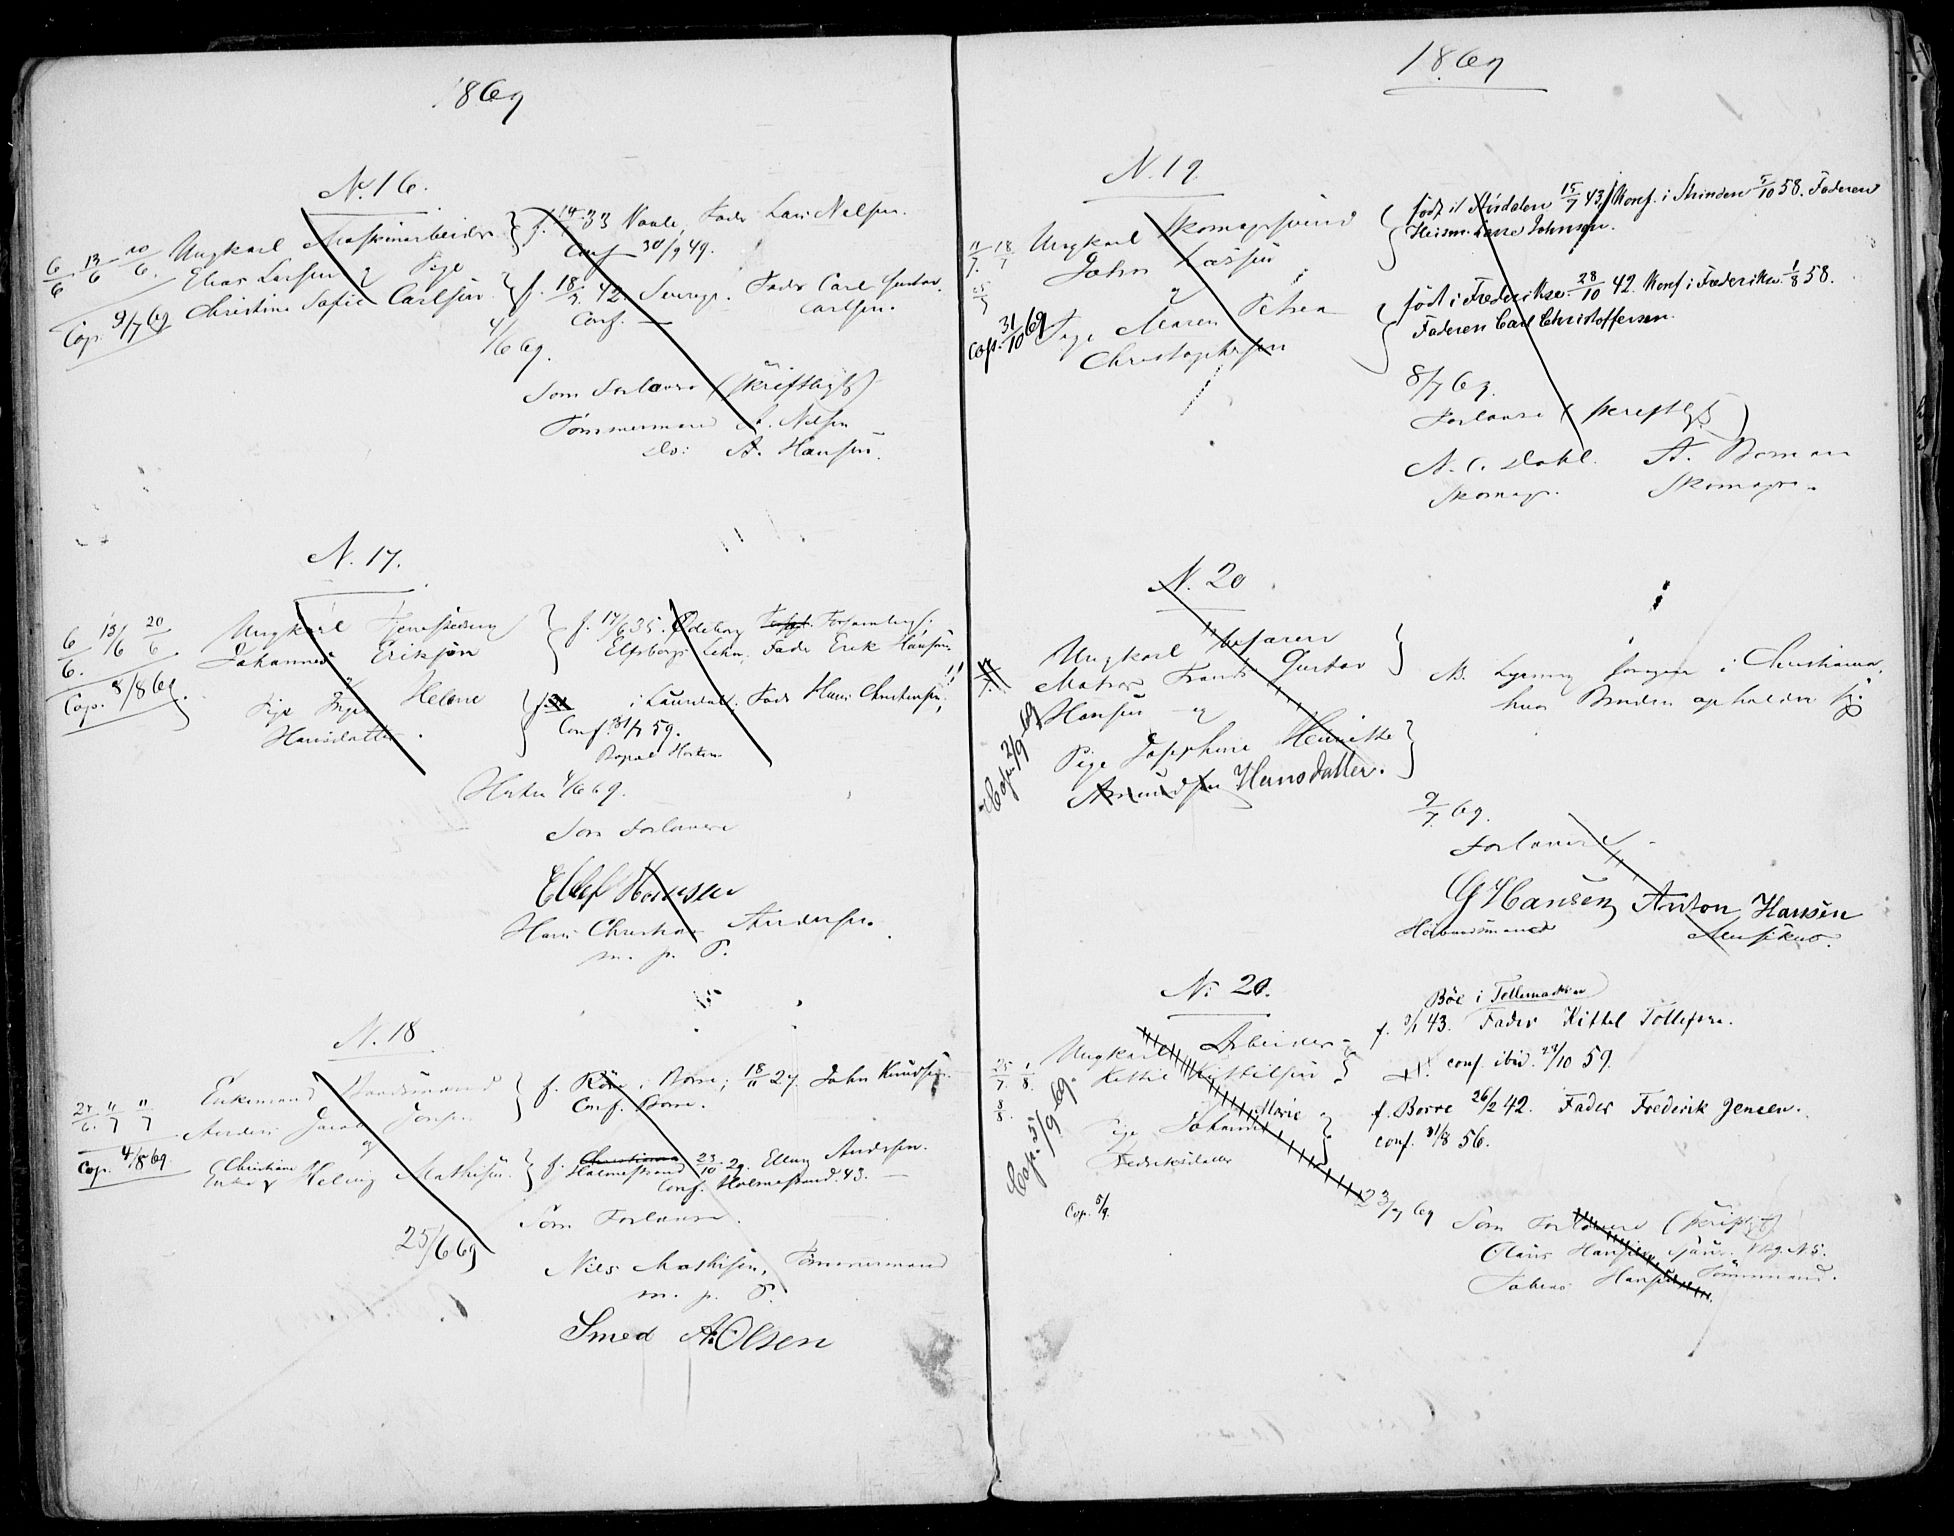 1869
N. 16.
6/6 13/6 20/6. Ungkarl Maskinarbeider
Elias Larsen & Pige
Christine Sofie Carlsen
Cop. 9/7 69
f. 33 Vaale, Fader Lars Nelsen.
Conf 30/9 49.
f. 18/2 42. Sverige. Fader Carl Gustav.
Conf. — Carlsen.
4/6 69.
Som Forlovere (skriftligt)
Tømmermand A. Nelsen
do: A. Hansen.
N. 17.
6/6. 13/6 20/6 Ungkarl
Johannes Eriksen
Cop. 8/8 69.
og
Pige Helene
Hansdatter.
f. 17/6 35. Ødeborg Forsamling:
Elfsborgs Lehn, Fader Erik Hansen.
i Laurdal. Fader Hans Christensen,
Conf. 31/7 59.
Bopæl Horten
Horten 4/6 69.
Som Forlovere
Ellef Hansen
Hans Christian Andersen.
m. p. P.
N. 18
Enkemand Baadsmand
Anders Jacob Jonsen
og
11/7 11/7
Cop. 4/8 69
Christiane
Enke Helvig Mathisen.
f. Røre i Borre; 18/11 27. John Knudsen.
Conf. Borre.
f. Christiania 23/10 29. Elling Andersen.
Holmestrand
Conf. Holmestrand. 43. —
25/6 69
Som Forlovere.
Niels Mathisen, Tømmermand
m. p. P.
Smed A. Olsen
1869
N. 19.
11/7. 18/7 Ungkarl Skomagersvend
John Larsen
25/7
og
Cop. 31/10 69 Pige Maren Petrea
Christophersen
født i Stjørdalen 15/7 43, Konf. i Strinden 5/10 58. Faderen
Husm. Lars Johnsen.
født i Frederiksv. 28/10 42. Konf i Frederiksv. 1/8 58.
Faderen Carl Christoffersen.
8/7 69.
Forlovere (skriftligt)
N. C. Dahl. A. Boman
Skomager. Skomager.
N. 20
Ungkarl befaren
Matros Frants Gustav
Hansen og
Pige Josephine Henriette
Amundsen Hansdatter.
Cop. 2/9 69
NB. Lysning foregaar i Christiania,
hvor Bruden opholder sig
9/7 69.
Forlovere
G Hansen Anton Hansen
Musikus.
N: 20.
25/7. 1/8. Ungkarl Arbeider
Kittil Kittilsen
8/8.
Marie og
Pige Johanne
Fredriksdatter
Cop. 5/9 69.
Cop. 5/9.
Böe i Tellemarken
f. 9/1 43. Fader Kittel Tollefsen.
conf. ibid. 23/10 59.
f. Borre 26/2 42. Fader Frederik Jensen.
conf. 31/8 56.
23/7 69 Som Forlovere (skriftligt)
Olaus Hansen
Tobias Hansen Tømmermand.